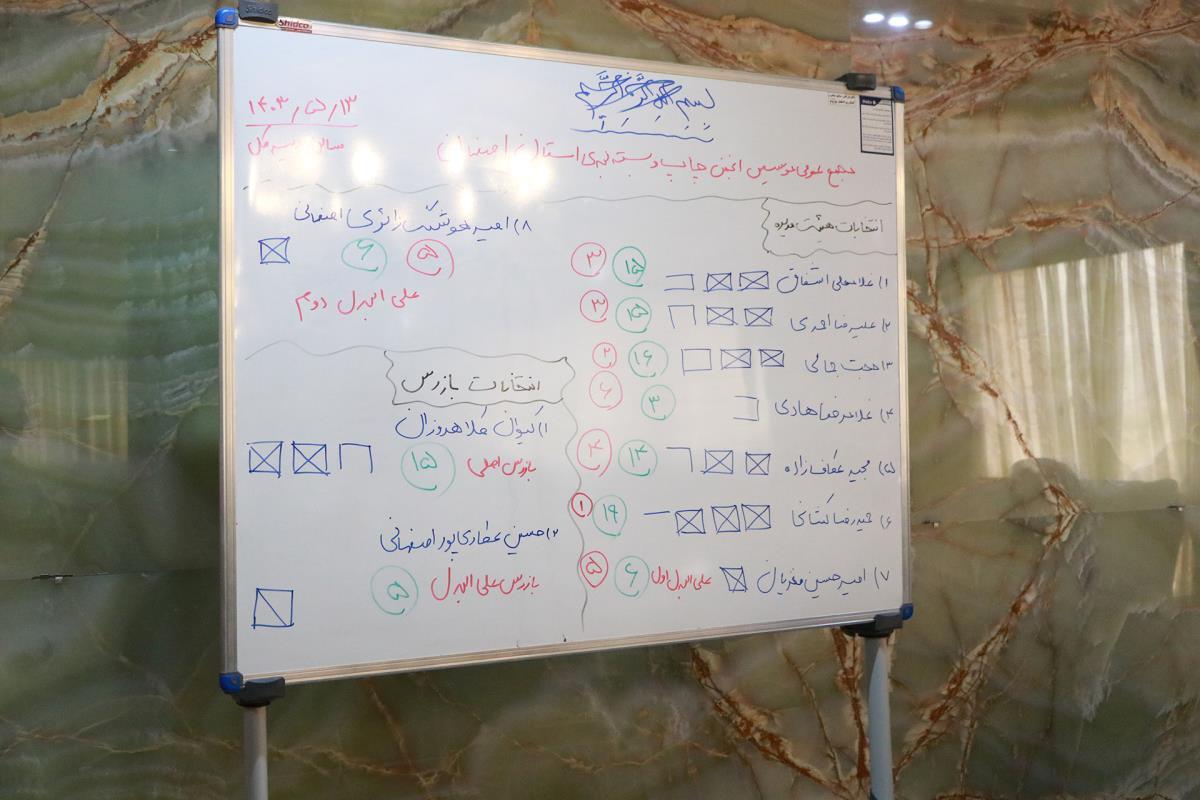 Shidco
بسم الله الرحمن الرحیم
۱۴۰۳/۵/۱۳
سالن
مجمع عمومی موسس انجمن چاپ و بسته بندی استان اصفهان
انتخابات هیئت مدیره
۱) غلامعلی اشفاق ۱۵ ۳
۲) علیرضا احدی ۱۵ ۳
۳) حجت جالی ۱۶ ۲
۴) غلامرضا هادی ۳ ۶
۵) مجید عفاف زاده ۱۴ ۴
۶) حیدرضا کتانچا ۱۹ ۱
۷) امیرحسین مغزیان علی البدل اول ۶ ۵
۸) امید زائری اصفهانی
۵ ۶
علی البدل دوم
انتخابات بازرس
۱) کیوان
بازرس اصلی ۱۵
۲) حسین عطاری پور اصفهانی
بازرس علی البدل ۵